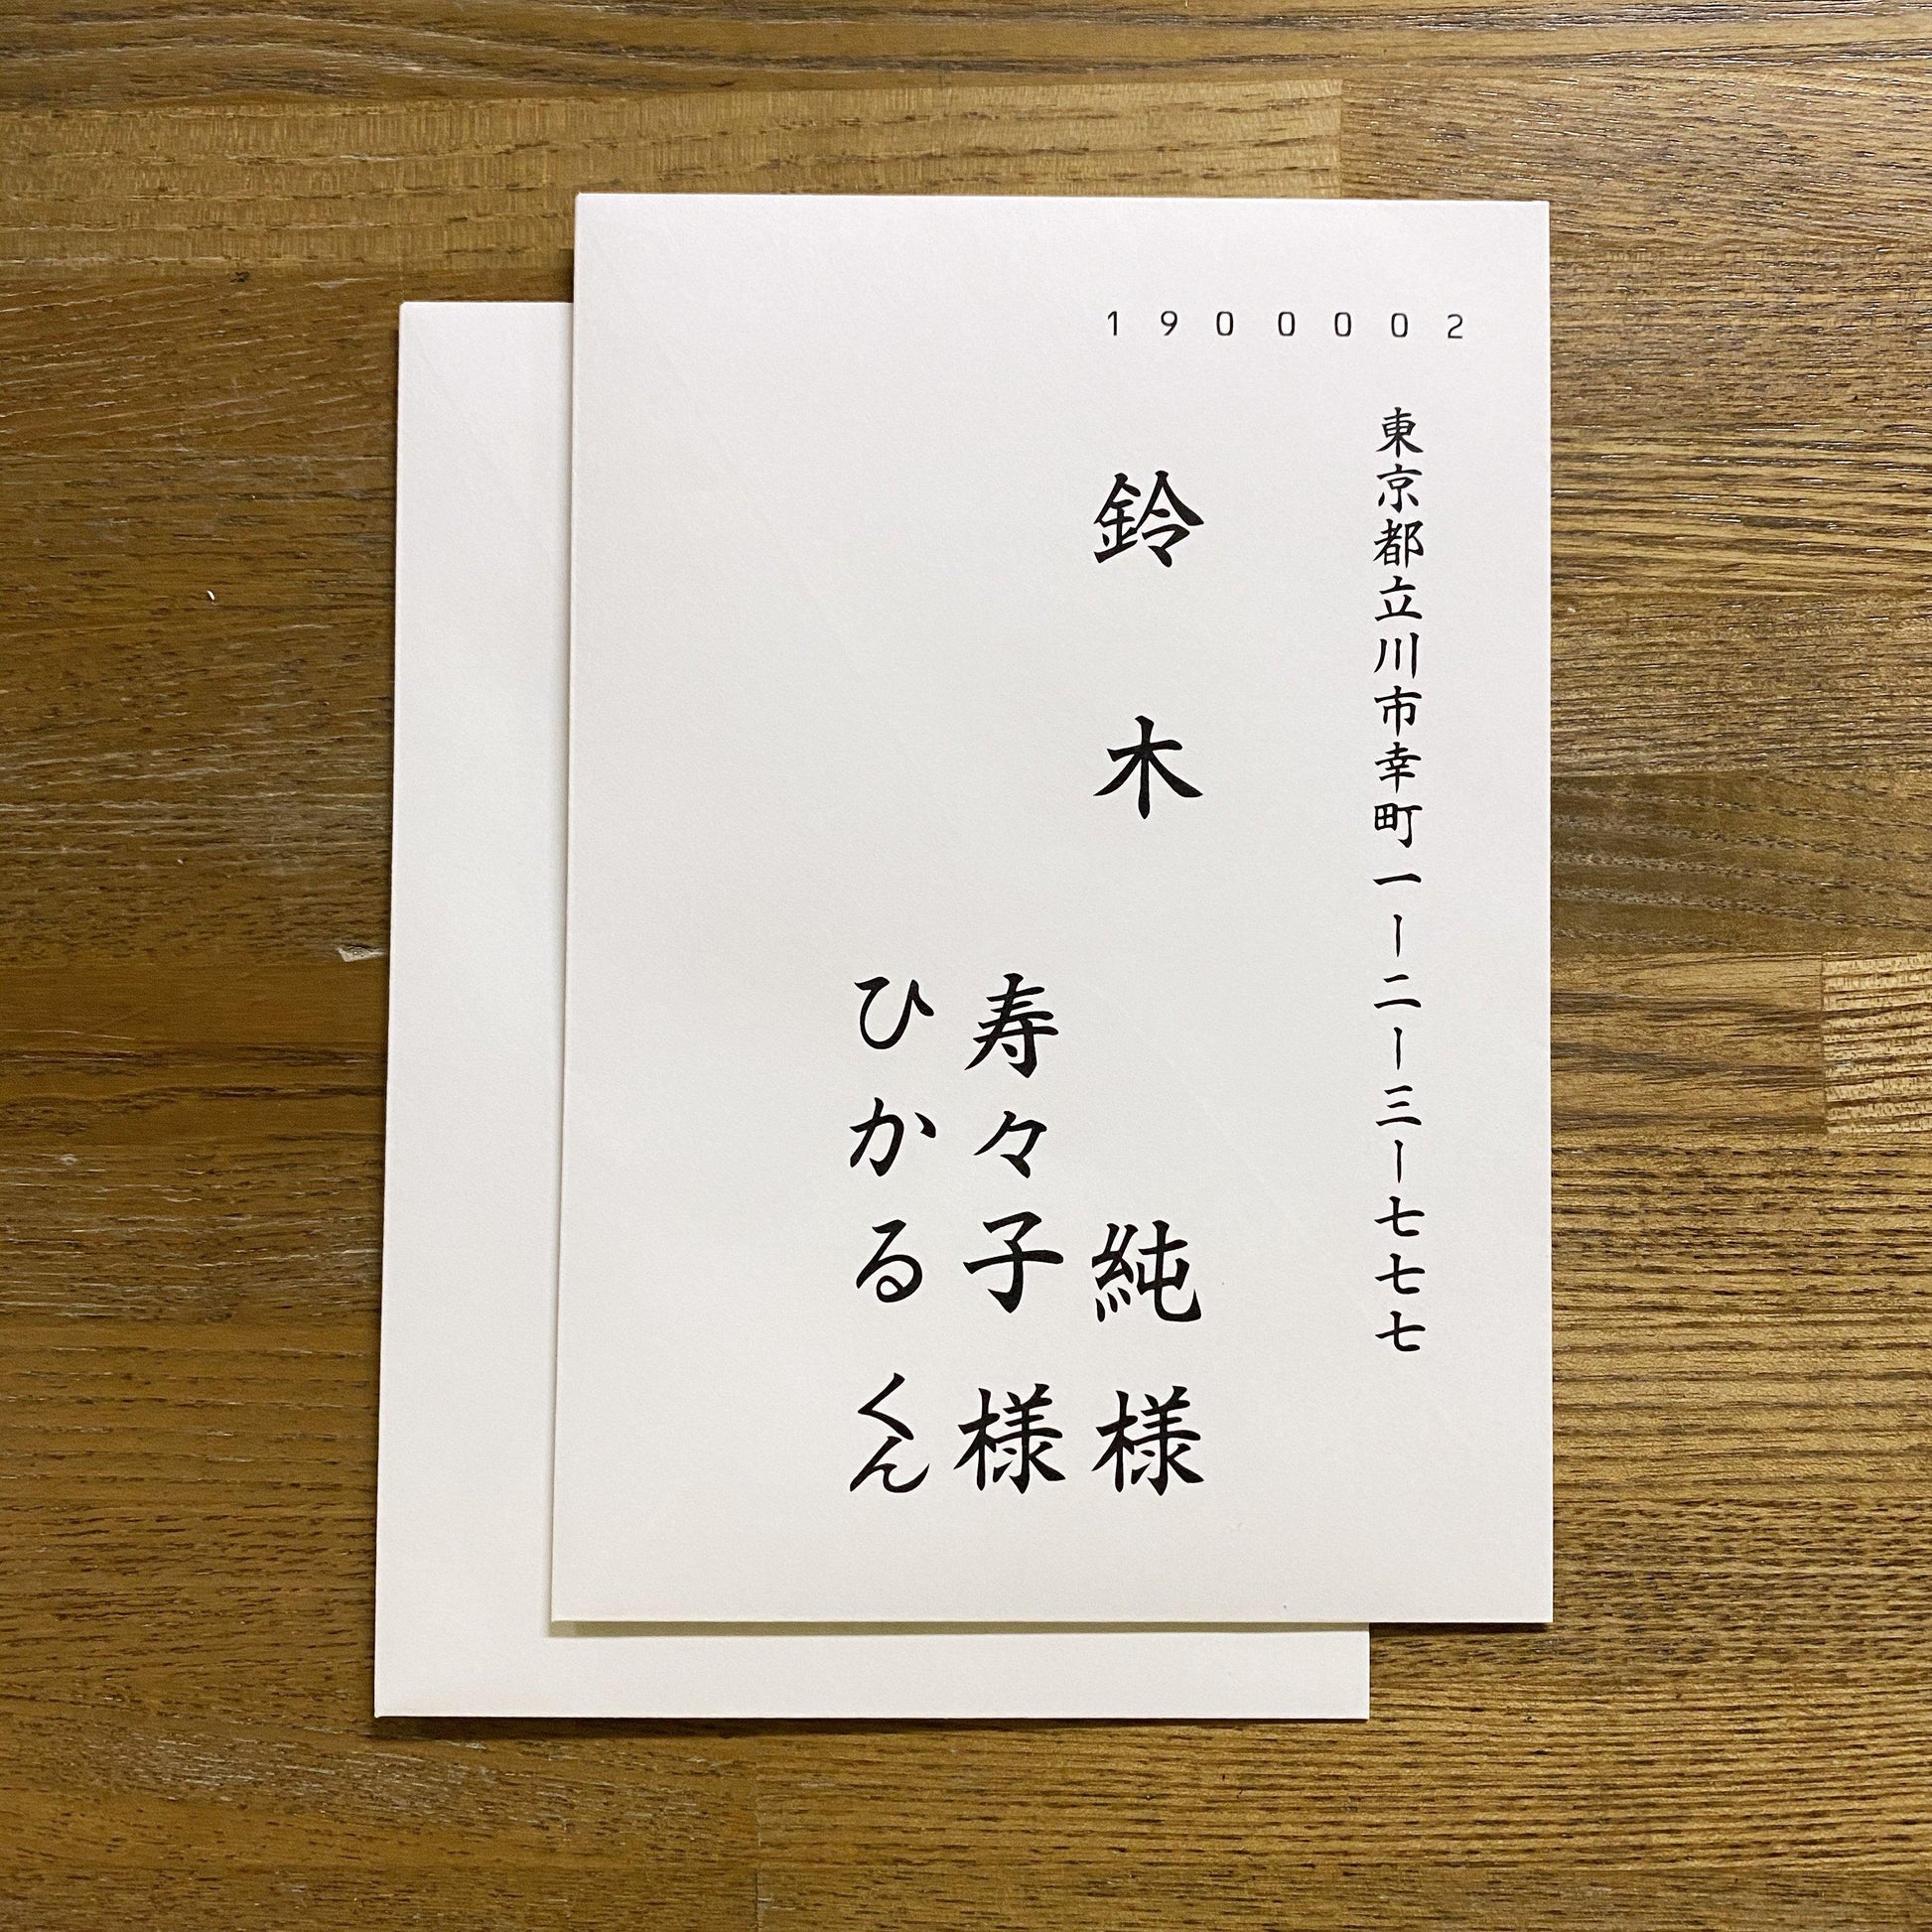 1900002
東京都立川市幸町一ー二ー三ー七七七
鈴木 純 様
寿々子 様
ひかる くん